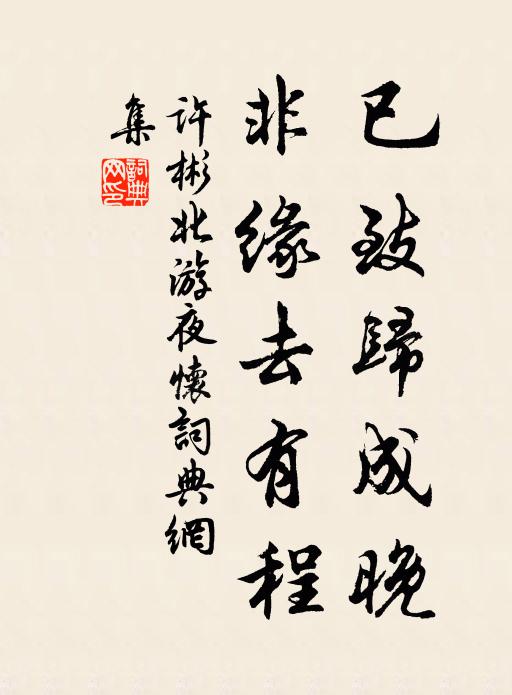 已致歸成晚
非緣去有程
許彬北游夜懷詞典網
集
詞典
网印